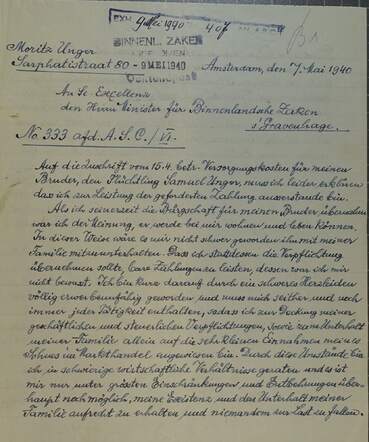 EXH. 9 Mei 1940 407
BINNENL. ZAKEN
- 9 MEI 1940
Moritz Unger
Sarphatistraat 80
Amsterdam, den 7. Mai 1940
An Se Excellenz
den Herrn Minister für Binnenlandsche Zaken
s'Gravenhage.
No. 333 afd. A.S.C./VI.
Auf die Zuschrift vom 15.4. betr. Versorgungskosten für meinen
Bruder, den Flüchtling Samuel Unger, muss ich leider erklären
das ich zur Leistung der geforderten Zahlung ausserstande bin.
Als ich seinerzeit die Bürgschaft für meinen Bruder übernahm
war ich der Meinung, er werde bei mir wohnen und leben können.
In dieser Weise wäre es mir nicht schwer geworden ihn mit meiner
Familie mitzuunterhalten. Dass ich stattdessen die Verpflichtung
übernehmen sollte, bare Zahlungen zu leisten, dessen war ich mir
nicht bewusst. Ich bin kurz darauf durch ein schweres Herzleiden
völlig erwerbsunfähig geworden und muss mich seither und noch
immer jeder Tätigkeit enthalten, sodass ich zur Deckung meiner
geschäftlichen und steuerlichen Verpflichtungen, sowie zum Unterhalt
meiner Familie allein auf die sehr kleinen Einnahmen meines
Sohnes im Markthandel angewiesen bin. Durch diese Umstände bin
ich in schwierige wirtschaftliche Verhältnisse geraten und es ist
mir nur unter grössten Einschränkungen und Entbehrungen über-
haupt noch möglich, meine Existenz und das Unterhalt meiner
Familie aufrecht zu erhalten und niemandem zur Last zu fallen.